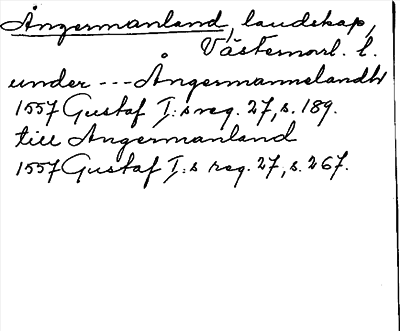 Ångermanland, landskap,
Västernorrl. l.
under --- Ångermannelandh
1557 Gustaf I:s reg. 27, s. 189.
till Angermanland
1557 Gustaf I:s reg. 27, s. 267.